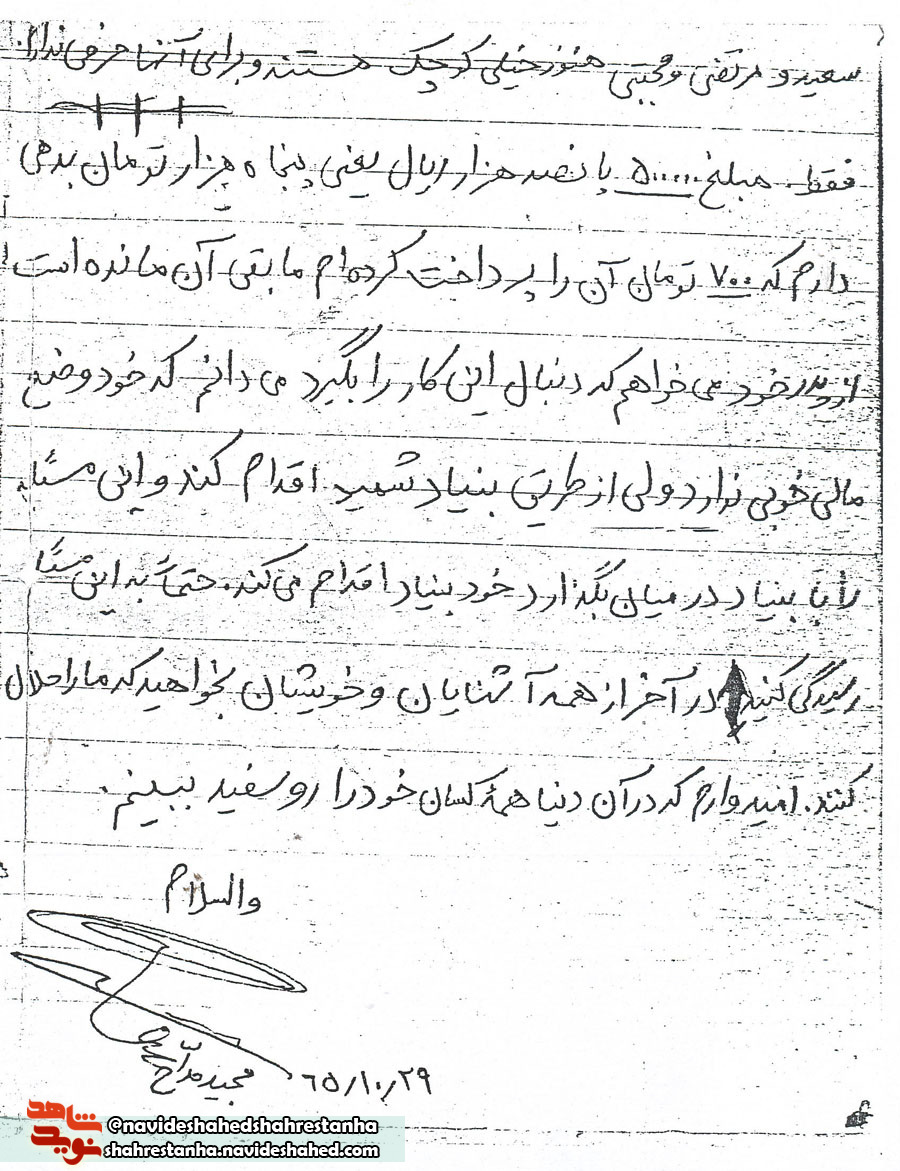 سعید و مرتضی و مجتبی هنوز خیلی کوچک هستند و برای آنها حرفی ندارم.
فقط مبلغ ۵۰۰۰۰۰ پانصد هزار ریال یعنی پنجاه هزار تومان بدهی
دارم که ۷۰۰ تومان آن را پرداخت کرده‌ام مابقی آن مانده است
از پدر خود می خواهم که دنبال این کار را بگیرد می دانم که خود وضع
مالی خوبی ندارد ولی از طریق بنیاد شهید اقدام کند و این مسئله
را با بنیاد در میان بگذارد خود بنیاد اقدام می کند. حتماً به این
رسیدگی کنید در آخر از همه آشنایان و خویشان بخواهید که ما را حلال
کنند. امیدوارم که در آن دنیا همهٔ کسان خود را رو سفید ببینم.
والسلام
مجید مداح
۶۵/۱۰/۲۹
شاهد
نوید
@navideshahedshahrestanha
shahrestanha.navideshahed.com